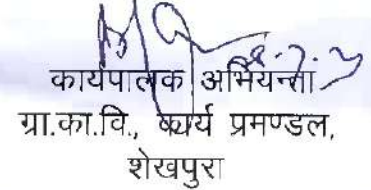 कार्यपालक अभियन्ता
ग्रा.का.वि., कार्य प्रमण्डल,
शेखपुरा